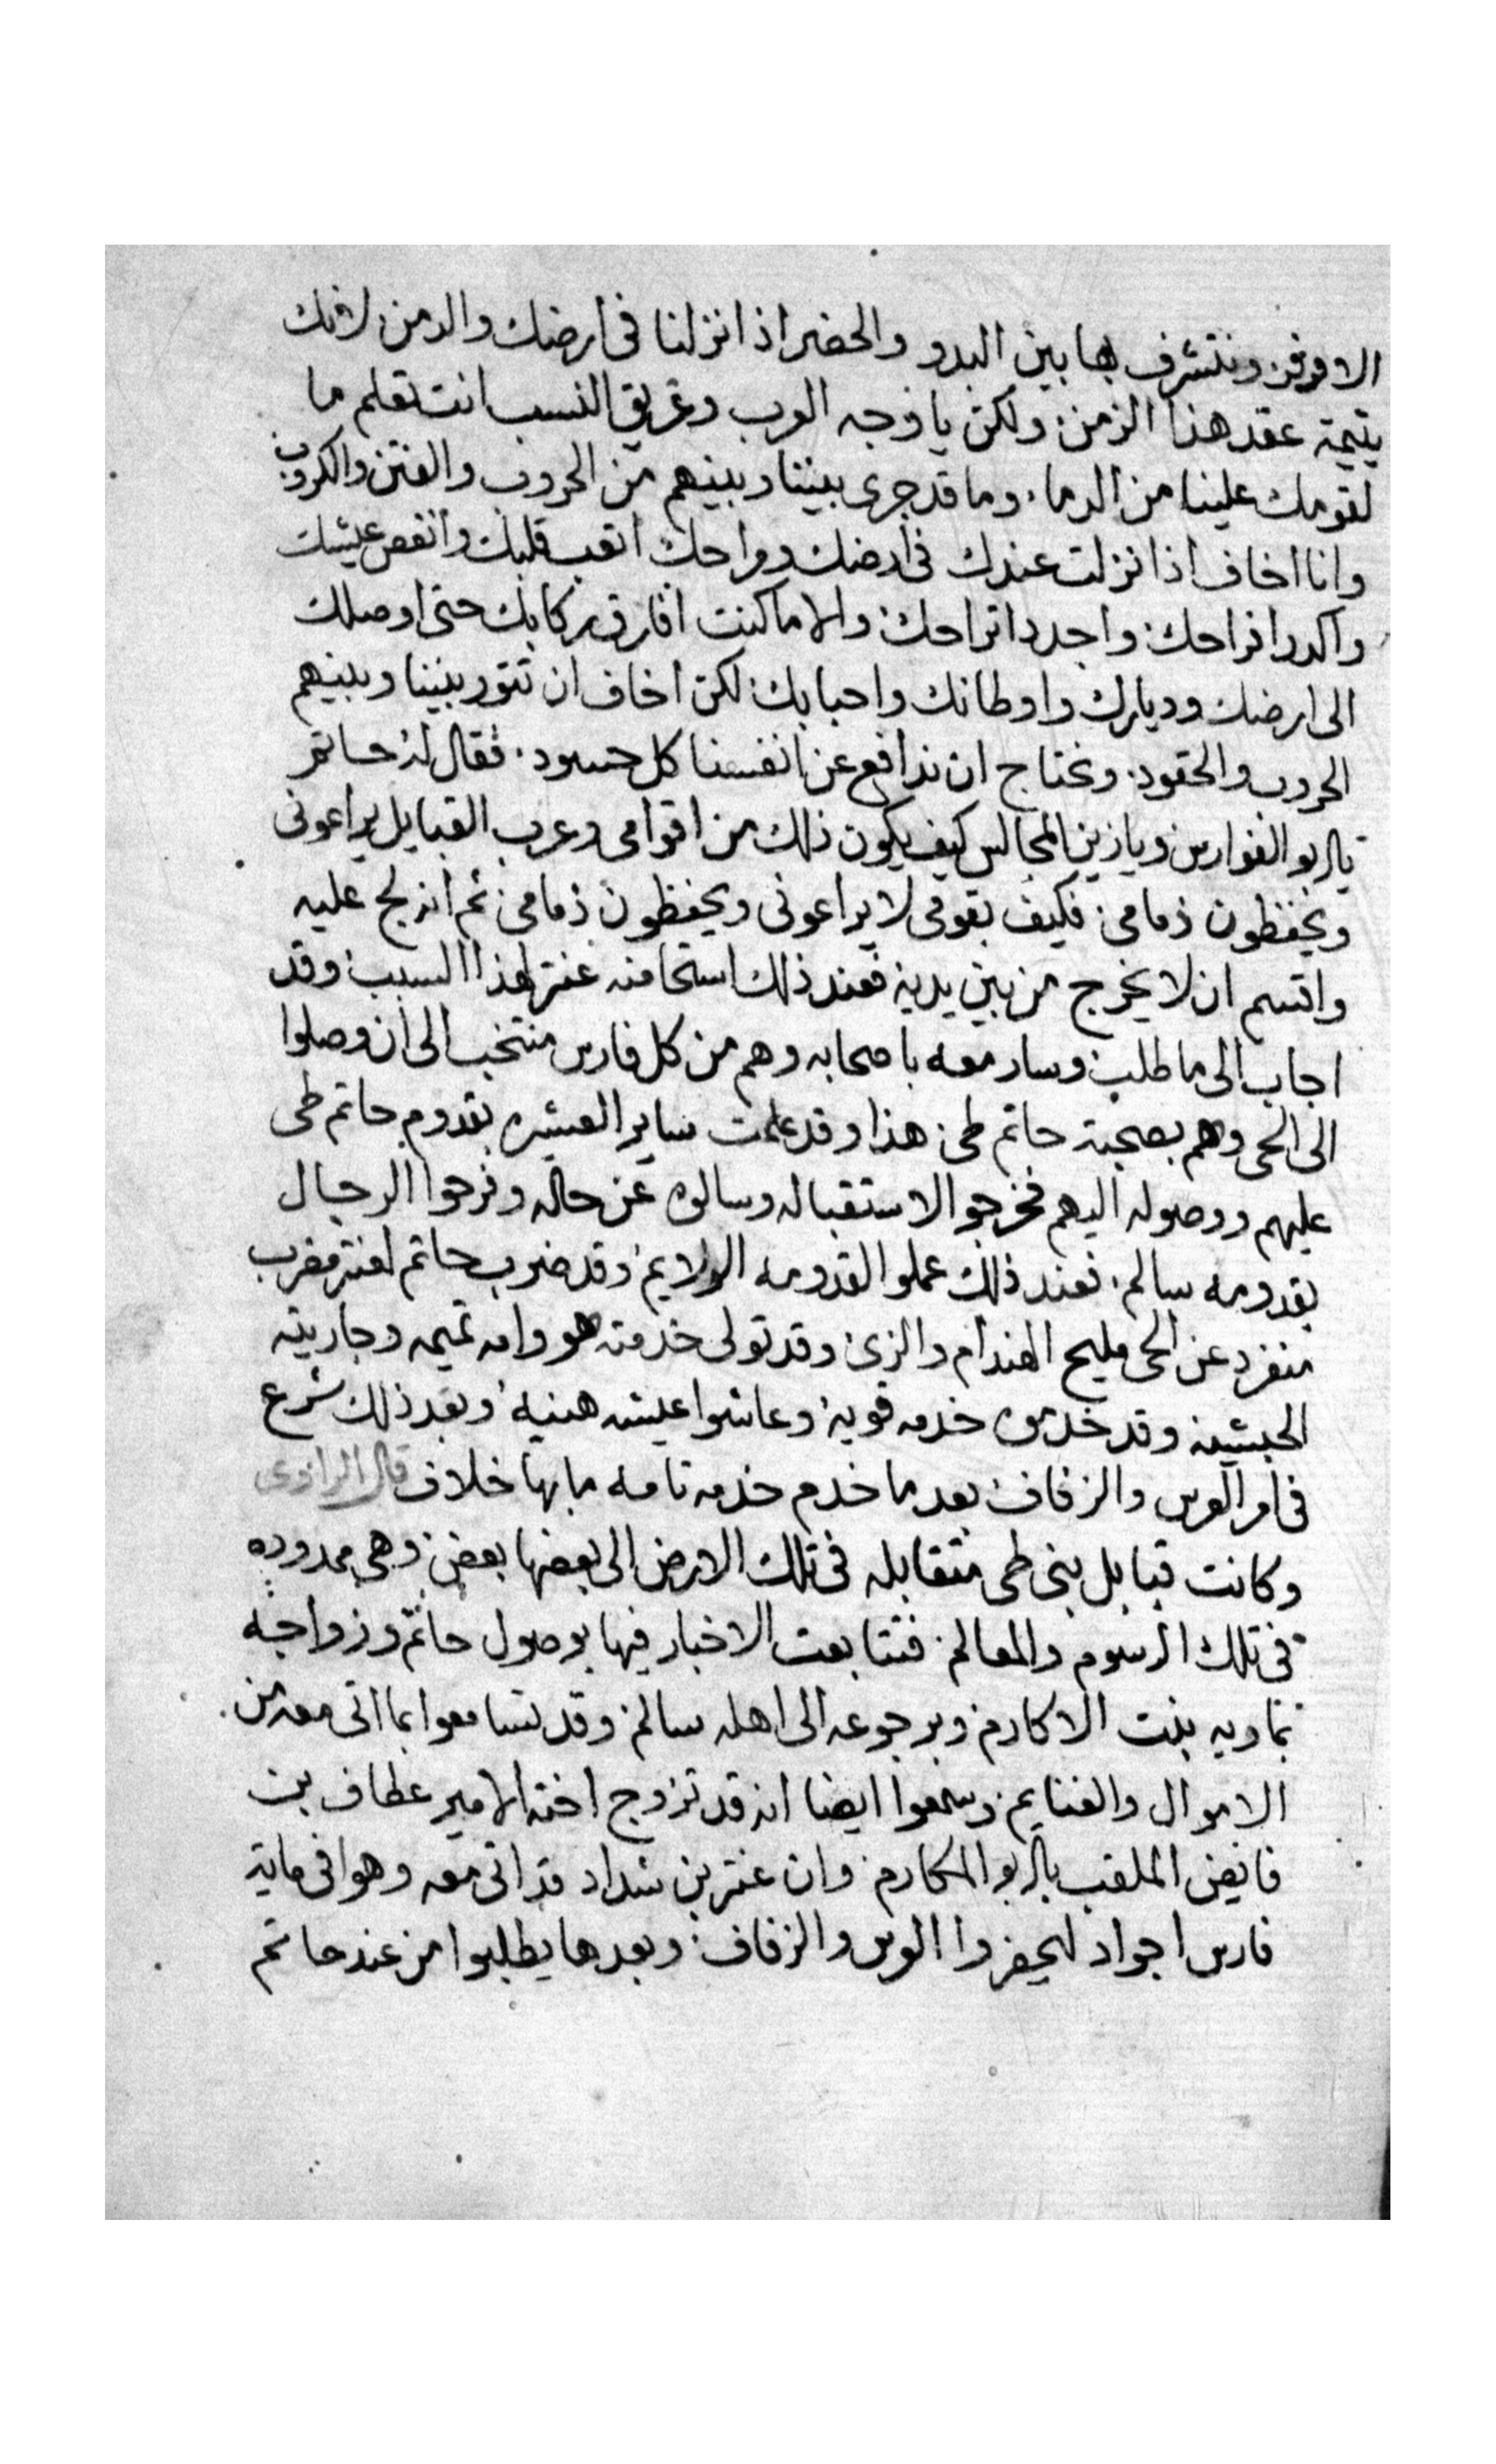 الاوفر ونتشرف بها بين البدو والحضر اذا نزلنا فى ارضك والدمن لانك
يتيمة عقد هذا الزمن ولكن يا وجه العرب وعريق النسب انت تعلم ما
لقومك علينا من الدما وما قد جرى بيننا وبينهم من الحروب والفتن والكروب
وانا اخاف اذا نزلت عندك فى ارضك ومراحك اتعب قلبك وانغص عيشك
واكدر افراحك واجدد اتراحك والا ما كنت افارق ركابك حتى اوصلك
الى ارضك وديارك واوطانك واحبابك لكن اخاف ان تثور بيننا وبينهم
الحروب والحقود ونحتاج ان ندافع عن انفسنا كل حسود فقال له حاتم
يا ابو الفوارس ويا زين المجالس كيف يكون ذلك من اقوامى وعرب القبايل يراعونى
ويحفظون ذمامى فكيف بقومى لا يراعونى ويحفظون ذمامى ثم انه لج عليه
واقسم ان لا يخرج من بين يديه فعند ذلك استحا منه عنتر لهذا السبب وقد
اجاب الى ما طلب وسار معه باصحابه وهم من كل فارس منتخب الى ان وصلوا
الى الحى وهم بصحبة حاتم طى هذا وقد علمت ساير العشيره بقدوم حاتم طى
عليهم ووصوله اليهم فخرجوا لاستقباله وسالوه عن حاله وفرحوا الرجال
بقدومه سالم فعند ذلك عملوا لقدومه الولايم وقد ضرب حاتم لعنتر مضرب
منفرد عن الحى مليح الهندام والزى وقد تولى خدمته هو وامه تميمه وجاريته
الحبشيه وقد خدموه خدمه قويه وعاشوا عيشه هنيه وبعد ذلك شرع
فى امر العرس والزفاف بعد ما خدم خدمه تامه ما بها خلاف قال الراوى
وكانت قبايل بنى طى متقابله فى تلك الارض الى بعضها بعض وهى ممدوده
فى تلك الرسوم والمعالم فتتابعت الاخبار فيها بوصول حاتم وزواجه
بماويه بنت الاكارم وبرجوعه الى اهله سالم وقد تسامعوا بما اتى معه من
الاموال والغنايم وسمعوا ايضا انه قد تزوج اخته الامير عطاف بن
فايض الملقب بابو المكارم وان عنتر بن شداد قد اتى معه وهو فى ماية
فارس اجواد ليحضروا العرس والزفاف وبعدها يطلبوا من عند حاتم